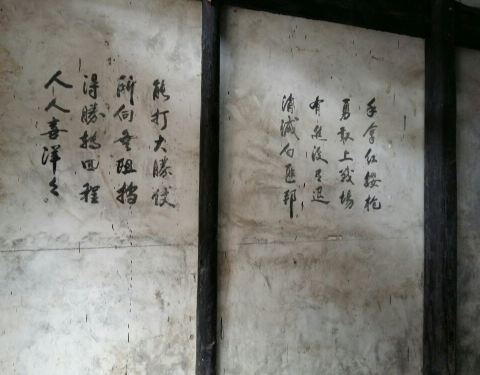 手拿红缨枪
勇敢上战場
有进没有退
消滅白匪邦
能打大勝仗
所向无阻擋
得勝回程
人人喜洋々